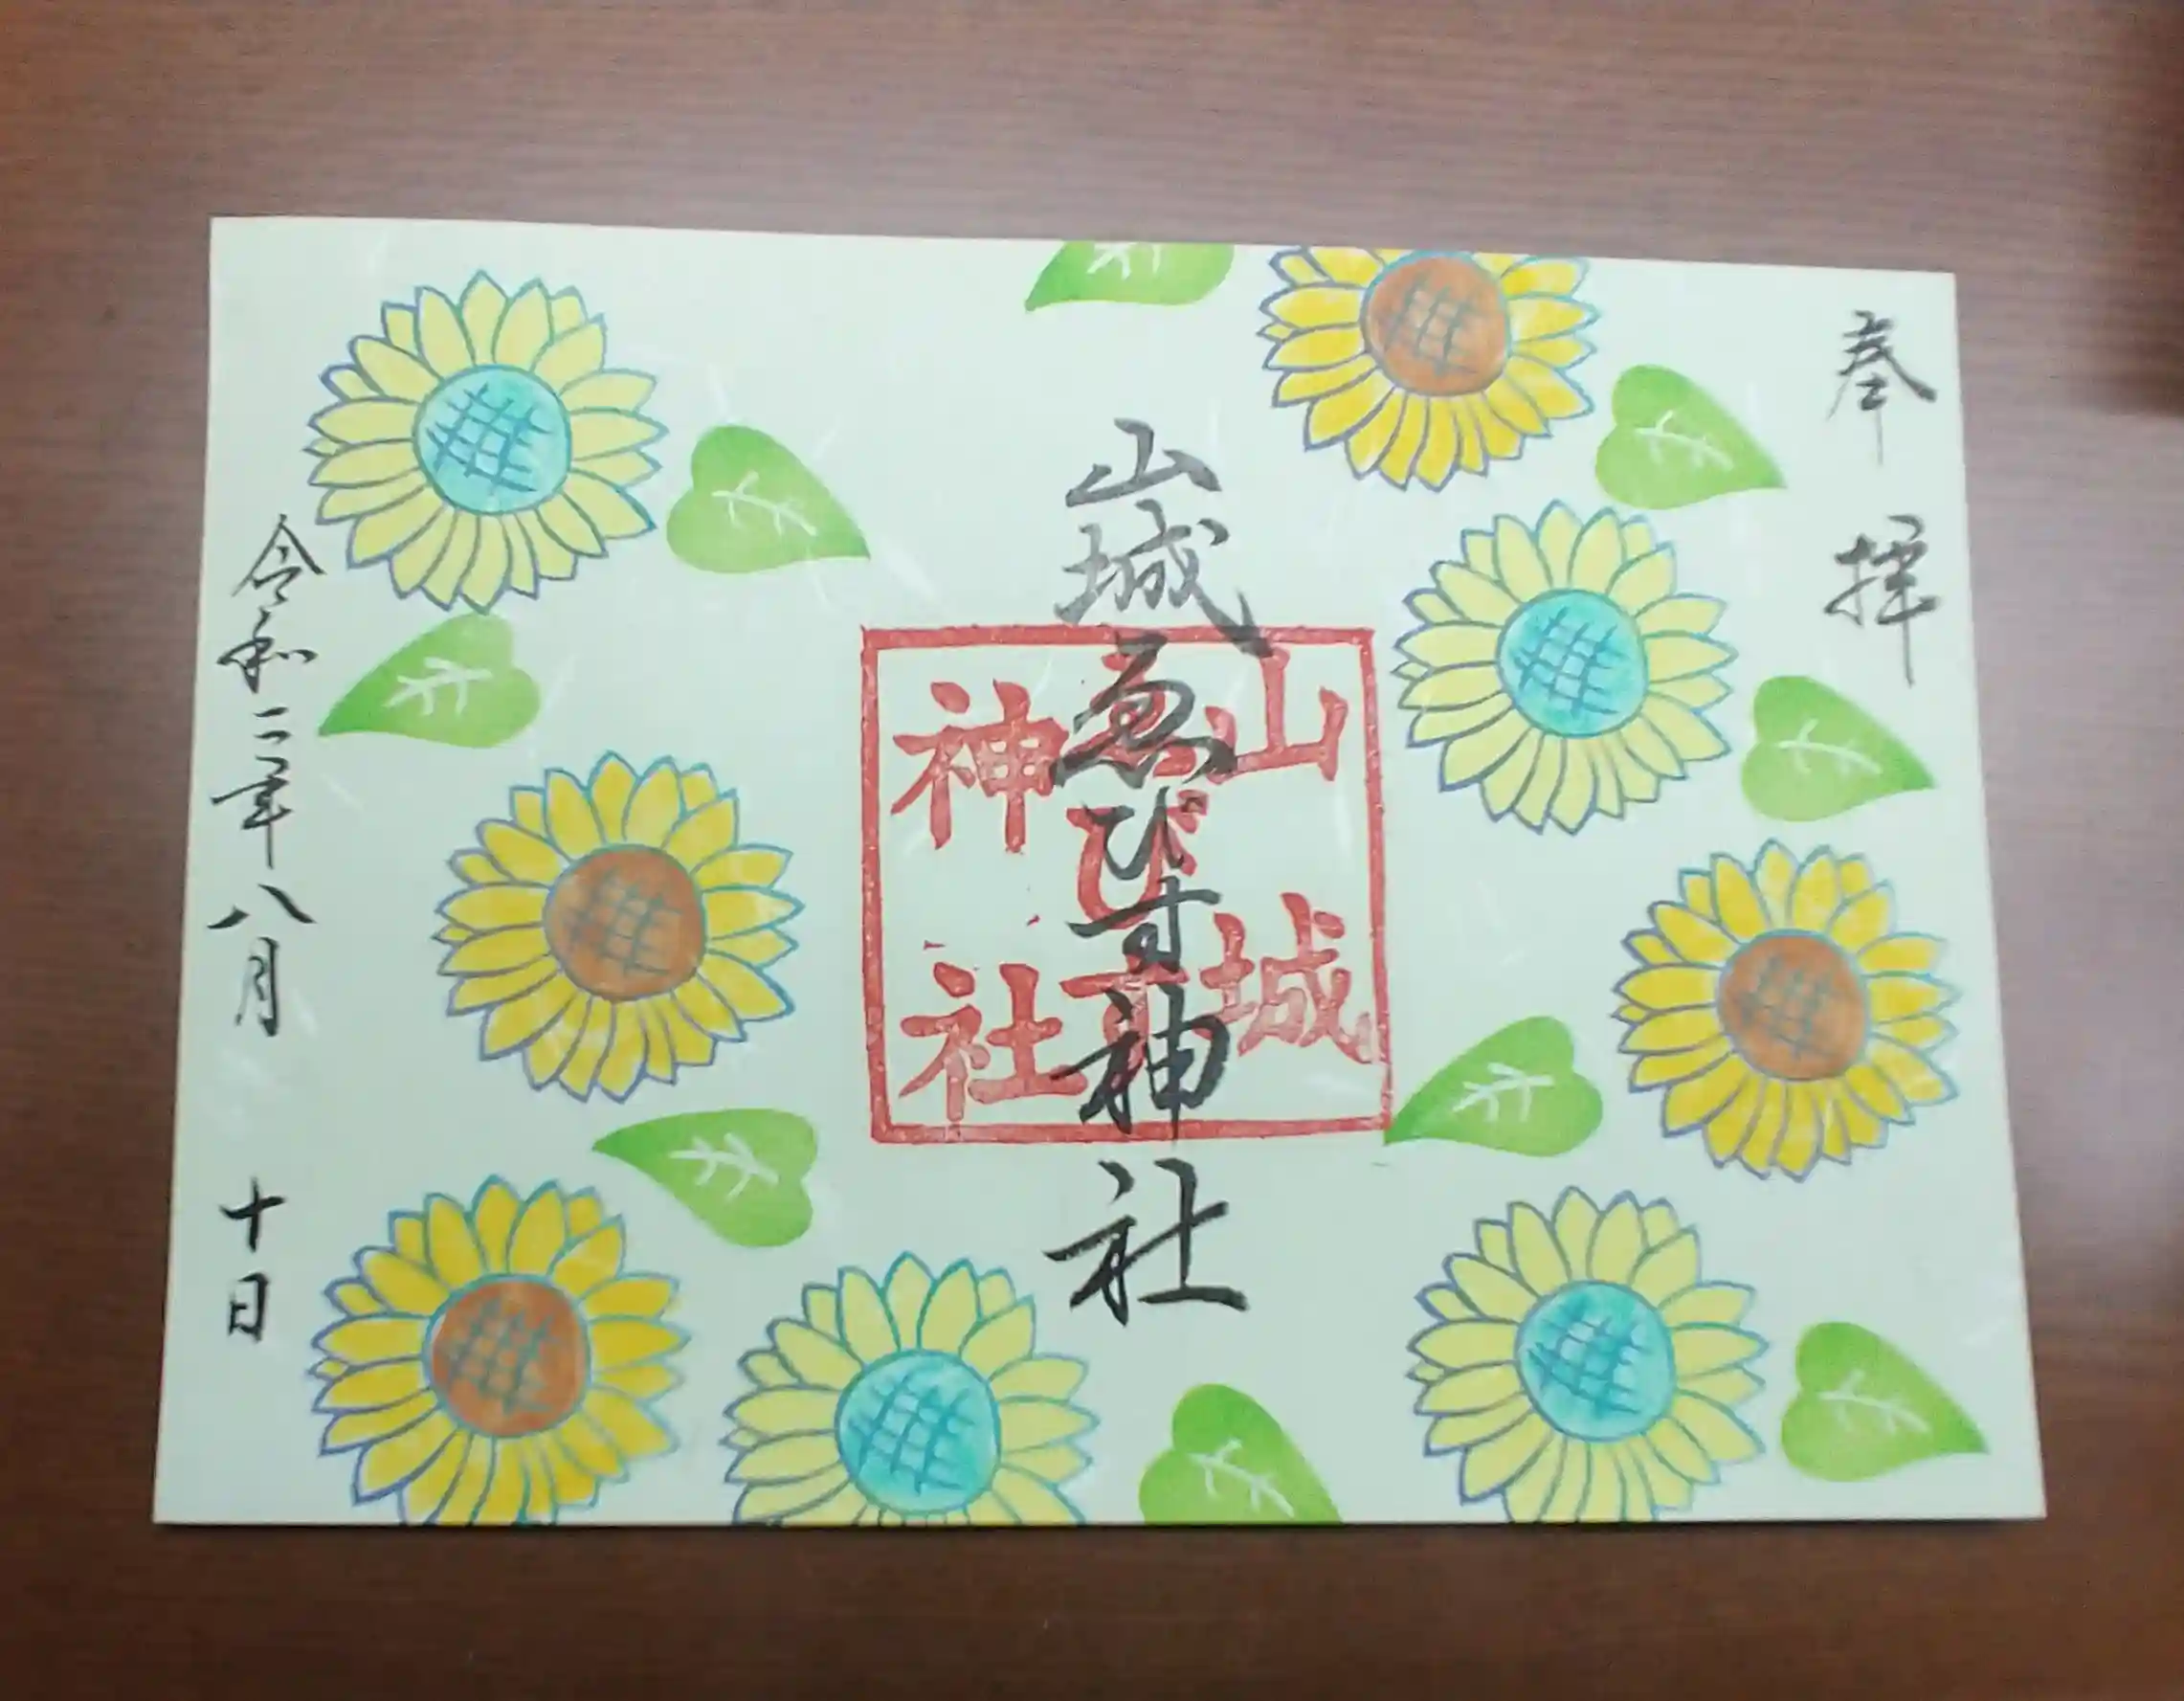 奉拝
山城ゑびす神社
山城
ゑびす
神社
令和二年八月 十日